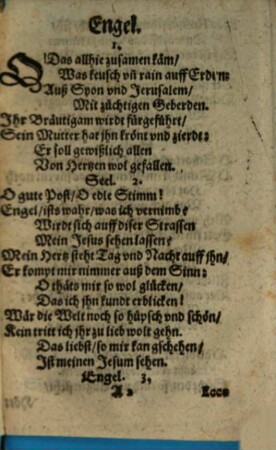 Engel.
1.
O! Das allhie zusamen käm/
Was keusch vñ rain auff Erden:
Auß Syon und Jerusalem/
Mit züchtigen Geberden.
Ihr Bräutigam wirdt fürgeführt/
Sein Mutter hat jhn krönt und zierdt:
Er soll gewißlich allen
Von Hertzen wol gefallen.
Seel. 2.
O gute Post/ O edle Stimm!
Engel/ ists wahr/ was ich vernimb?
Wirdt sich auff diser Strassen
Mein Jesus sehen lassen?
Mein Hertz steht Tag vnd Nacht auff jhn/
Er kompt mir nimmer auß dem Sinn:
O thäts mir so wol glücken/
Das ich jhn kundt erblicken!
Wär die Welt noch so hüpsch und schön/
Kein tritt ich jhr zu lieb wolt gehn.
Das liebst/ so mir kan gschehen/
Ist meinen Jesum sehen.
Engel. 3.
A 2 Ecce